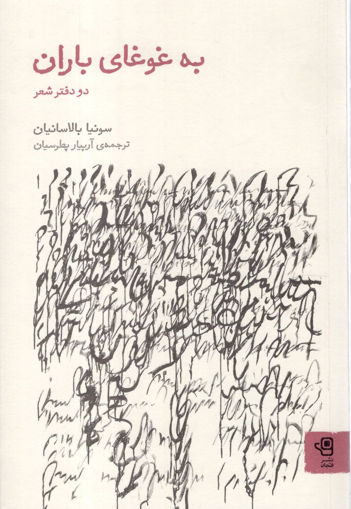 به غوغای باران
دو دفتر شعر
سونیا بالاسانیان
ترجمه‌ی آربیار پطرسیان
نشر